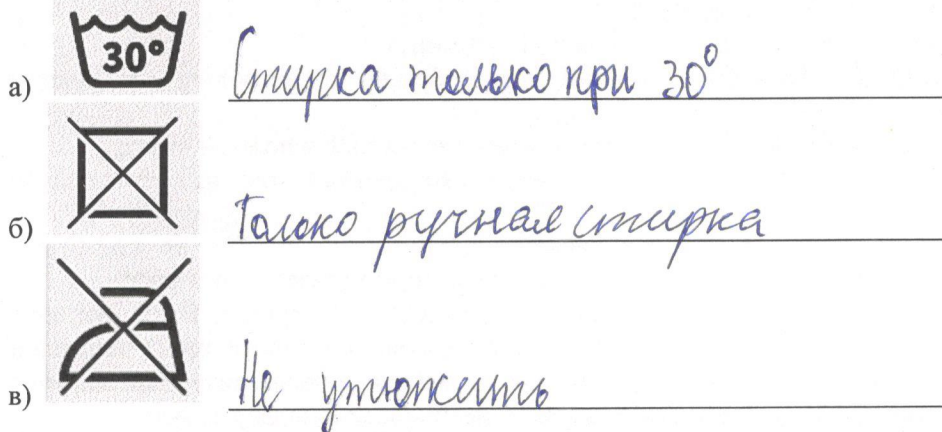 30°
а) Стирка только при 30°
б) Только ручная стирка
в) Не утюжить